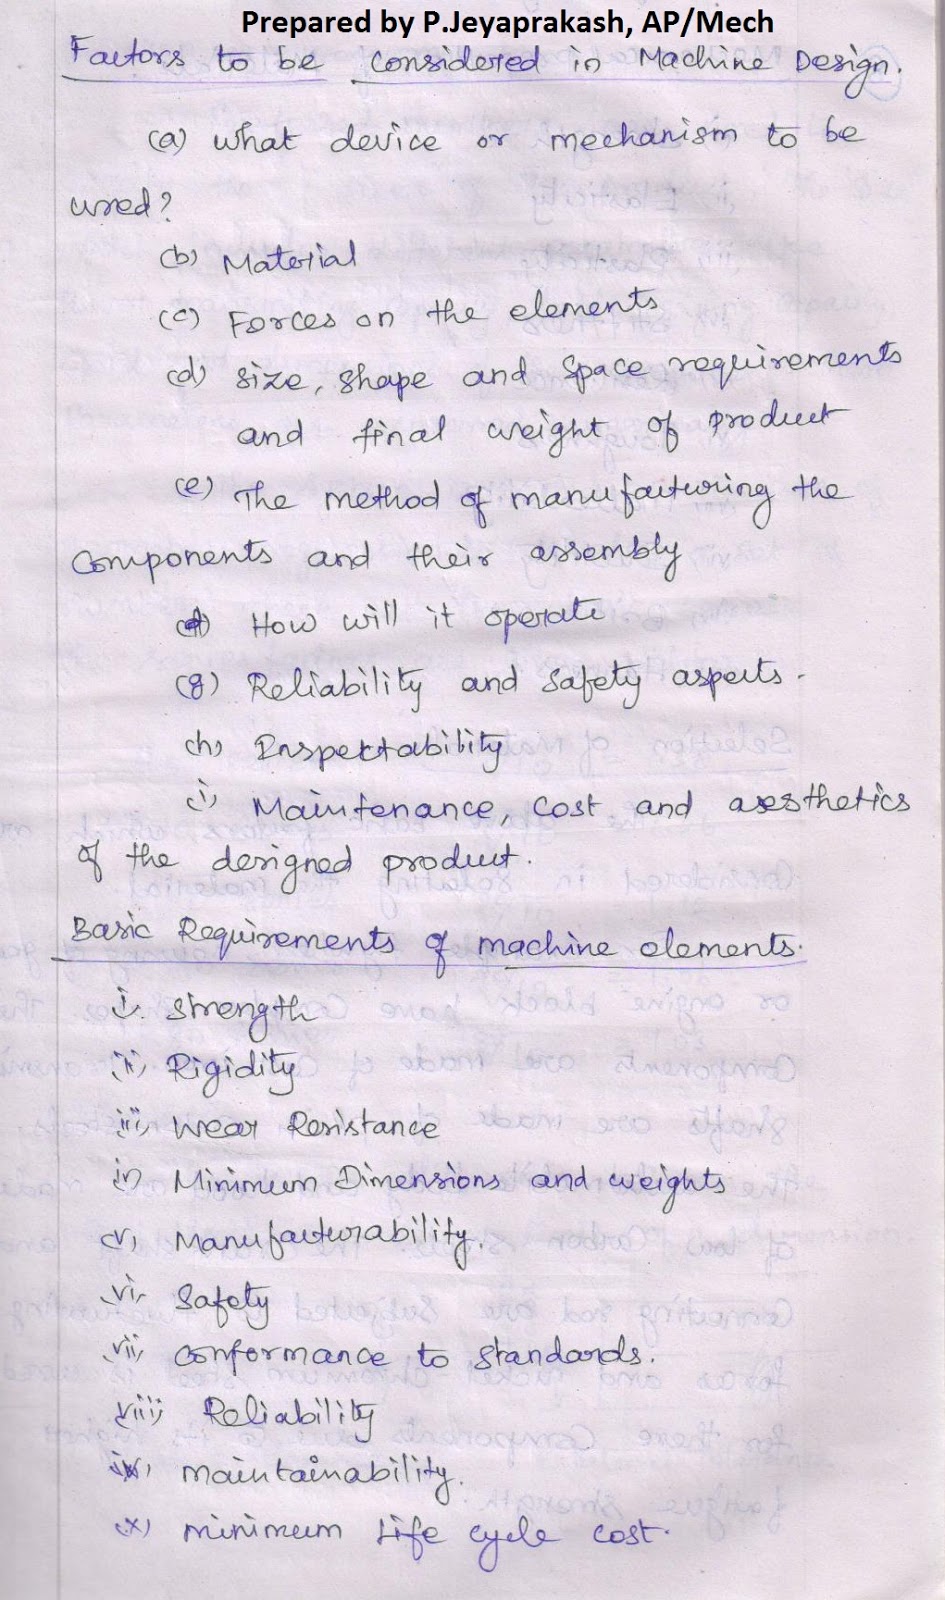 Prepared by P.Jeyaprakash, AP/Mech
Factors to be considered in Machine Design.
(a) what device or mechanism to be
used?
(b) Material
(c) Forces on the elements
(d) size, shape and space requirements
and final weight of product
(e) The method of manufacturing the
components and their assembly
(f) How will it operate
(g) Reliability and safety aspects.
(h) Inspectability
(i) Maintenance, cost and aesthetics
of the designed product.
Basic Requirements of machine elements.
i. strength
ii) Rigidity
iii) Wear Resistance
iv) Minimum Dimensions and weights
v) Manufacturability.
vi. Safety
vii) conformance to standards.
viii) Reliability
ix) maintainability.
x) minimum Life cycle cost.